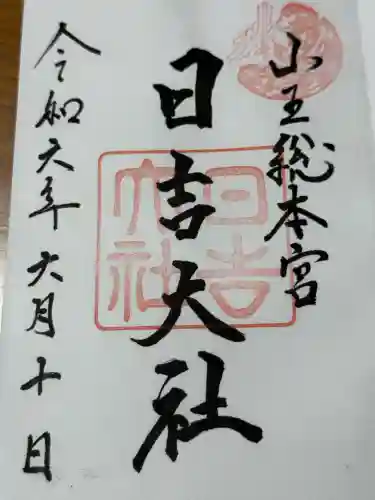 山王総本宮
日吉大社
令和六年六月十日
日吉大社